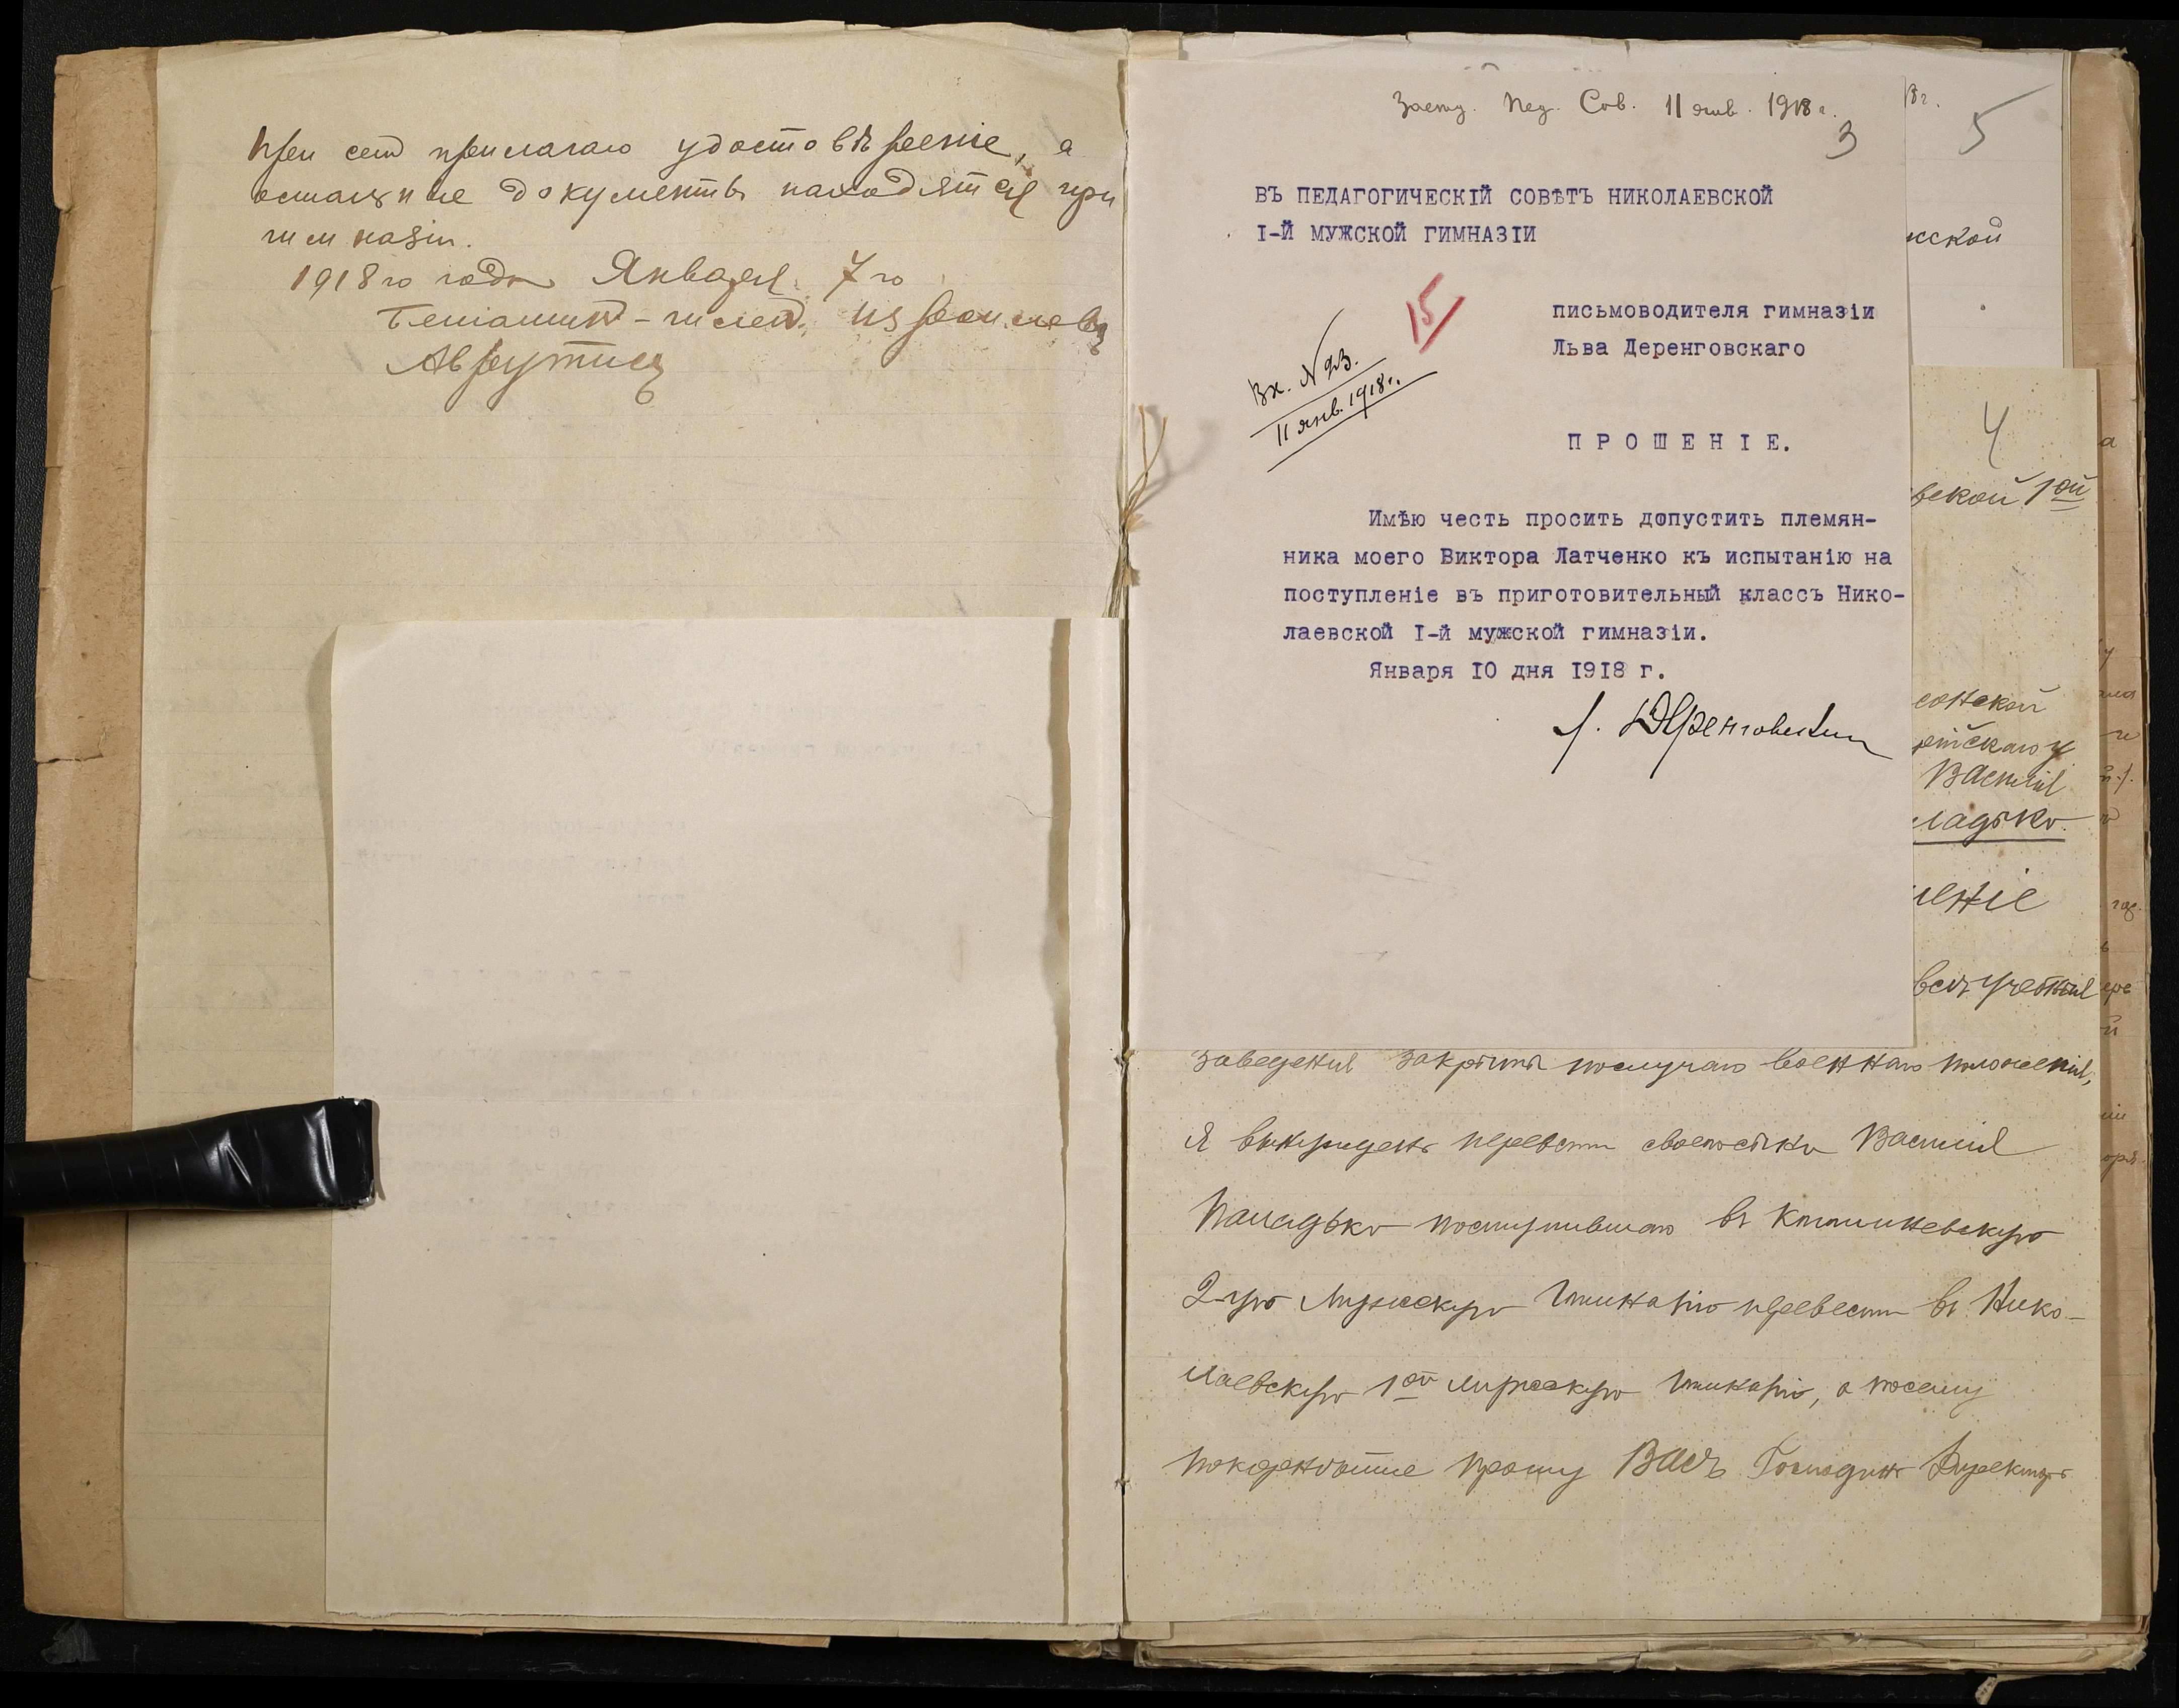 При семъ прилагаю удостовѣреніе, а
остальные документы находятся при
гимназіи.
1918 го года Января 7 го
Аврутинъ
Засѣд. Пед. Сов. 11 янв. 1918 г.
3
ВЪ ПЕДАГОГИЧЕСКІЙ СОВѢТЪ НИКОЛАЕВСКОЙ
I-Й МУЖСКОЙ ГИМНАЗІИ
15
письмоводителя гимназіи
Льва Деренговскаго
Вх. N 23.
11 янв. 1918 г.
П Р О Ш Е Н І Е.
Имѣю честь просить допустить племян-
ника моего Виктора Латченко къ испытанію на
поступленіе въ приготовительный классъ Нико-
лаевской I-й мужской гимназіи.
Января 10 дня 1918 г.
Л. Деренговскій
5
жской
4
вской 1ой
сонской
Василія
ладько.
еніе
заведенія закрыты послучаю военнаго положенія,
я вынужденъ перевести своего сына Василія
Паладько поступившаго въ Кишиневскую
2-ую Мужскую Гимназію перевести въ Нико-
лаевскую 1ой мужскую Гимназію, а посему
покорнѣйше прошу Васъ Господинъ Директоръ